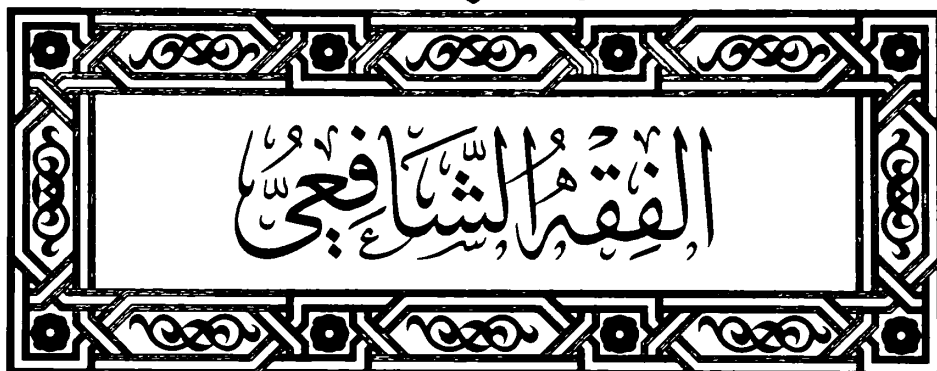 الفِقْهُ الشَّافِعِيُّ